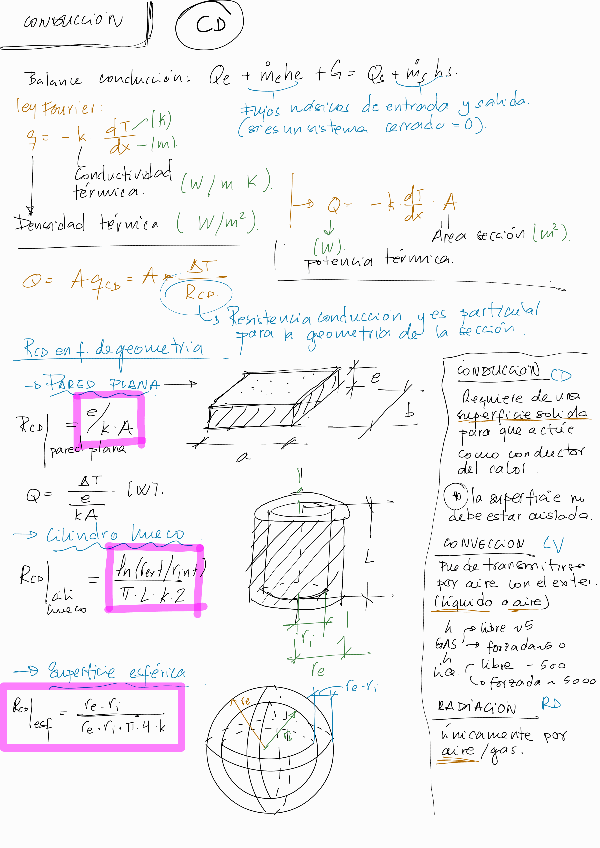 CONDUCCIÓN
CD
Balance conducción: Qe + ṁe he + G = Qs + ṁs hs.
Ley Fourier:
Flujos másicos de entrada y salida.
(si es un sistema cerrado = 0).
q = -k dT/dx (k) (m)
Conductividad térmica. (W/m K).
Densidad térmica ( W/m²).
Q = -k dT/dx · A
Área sección (m²).
(W).
potencia térmica.
Q = A · qCD = A · ΔT/RCD
Resistencia conduccion y es particular
para la geometria de la sección.
RCD en f. de geometria
PARED PLANA
RCD| pared plana = e/k·A
e
b
a
Q = ΔT / e/kA · [W].
Cilindro hueco
RCD| cili hueco = ln(rext/rint) / π·L·k·2
L
ri
re
Superficie esférica
RCD| esf = re - ri / re · ri · π · 4 · k
re
ri
re - ri
CONDUCCIÓN CD
Requiere de una
superficie solida
para que actúe
como conductor
del calor.
la superficie no
debe estar aislada.
CONVECCION CV
Puede transmitirse
por aire con el exter.
(líquido a aire)
h GAS libre ~5
forzada ~50
h LIQ libre ~500
forzada ~5000
RADIACION RD
únicamente por
aire/gas.